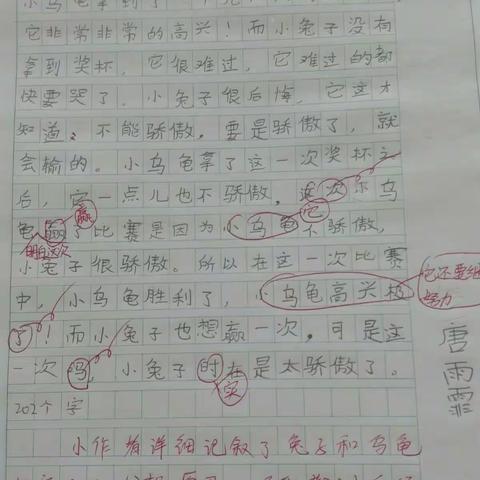 小乌龟拿到了
它非常非常的高兴！而小兔子没有
拿到奖杯，它很难过，它难过的都
快要哭了。小兔子很后悔，它这才
知道，不能骄傲，要是骄傲了，就
会输的。小乌龟拿了这一次奖杯之
后，它一点儿也不骄傲。这次小乌
赢
它
龟赢了比赛是因为小乌龟不骄傲，
小兔子很骄傲。所以在这一次比赛
它还要继续
努力
中，小乌龟胜利了，小乌龟高兴极
了！而小兔子也想赢一次，可是这
一次吗，小兔子时在是太骄傲了。
实
唐雨霏
202个字
小作者详细记叙了兔子和乌龟